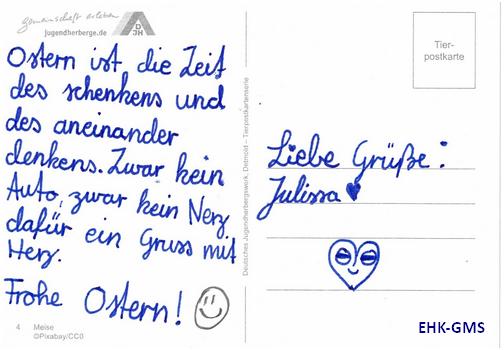 gemeinschaft erleben
jugendherberge.de
DJH
Ostern ist die Zeit
des schenkens und
des aneinander
denkens. Zwar kein
Auto, zwar kein Nerz
dafür ein Gruss mit
Herz.
Frohe Ostern!
4 Meise
©Pixabay/CC0
Deutsches Jugendherbergswerk, Detmold – Tierpostkartenserie
Tier-
postkarte
Liebe Grüße:
Julissa
EHK-GMS